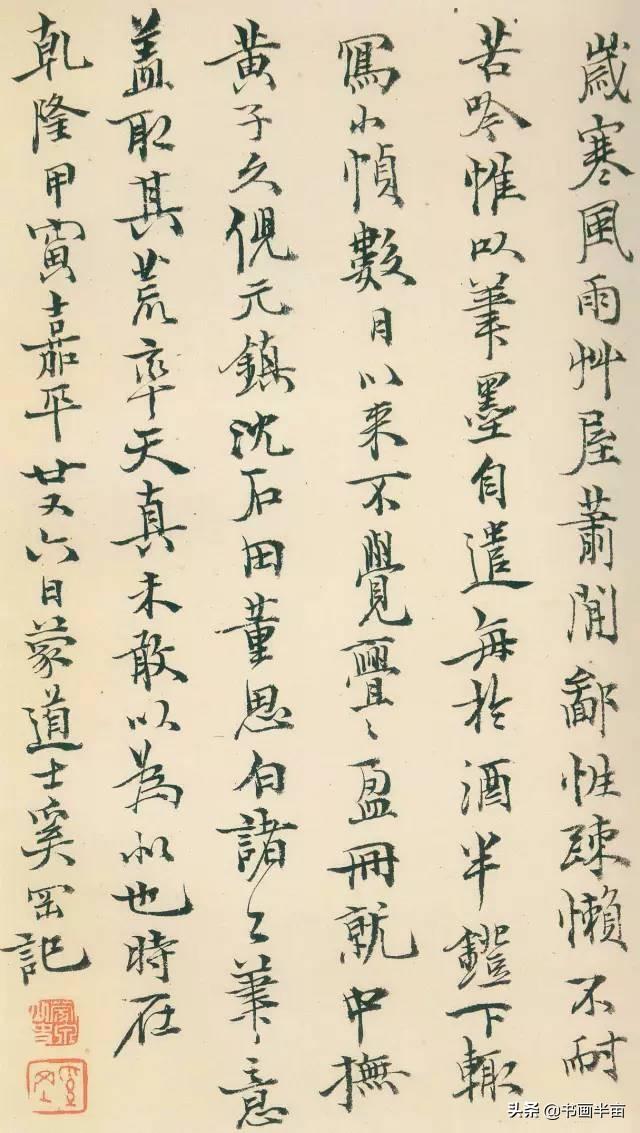 歲寒風雨艸屋蕭閒鄙性疎懶不耐
苦吟惟以筆墨自遣每於酒半鐙下輒
寫小幀數月以來不覺亹〻盈冊就中撫
黃子久倪元鎮沈石田董思白諸公筆意
蓋取其荒率天真未敢以為似也時在
乾隆甲寅嘉平廿又六日蒙道士奚岡記
头条 @书画半亩